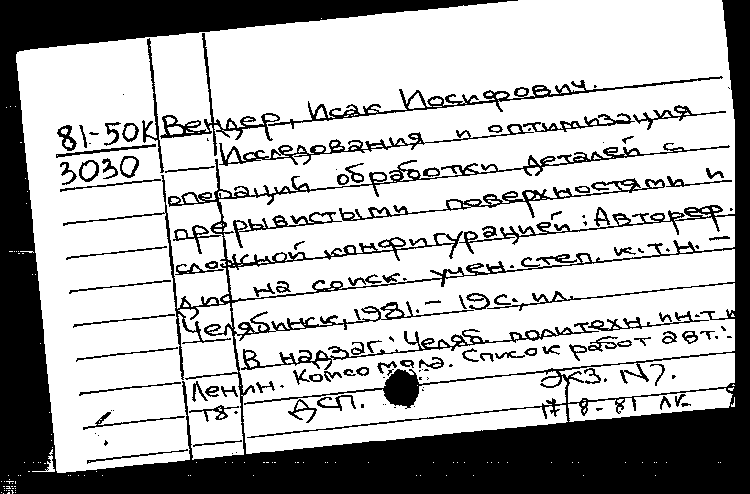 81-50К Вендер, Исак Иосифович.
3030 Исследования и оптимизация
операций обработки деталей с
прерывистыми поверхностями и
сложной конфигурацией: Автореф.
дис на соиск. учен. степ. к.т.н. –
Челябинск, 1981. – 19с., ил.
В надзаг.: Челяб. политехн. ин-т и
Ленин. Комсомола. Список работ авт.:
18. ДСП. Экз. №7.
17/8-81 ЛК